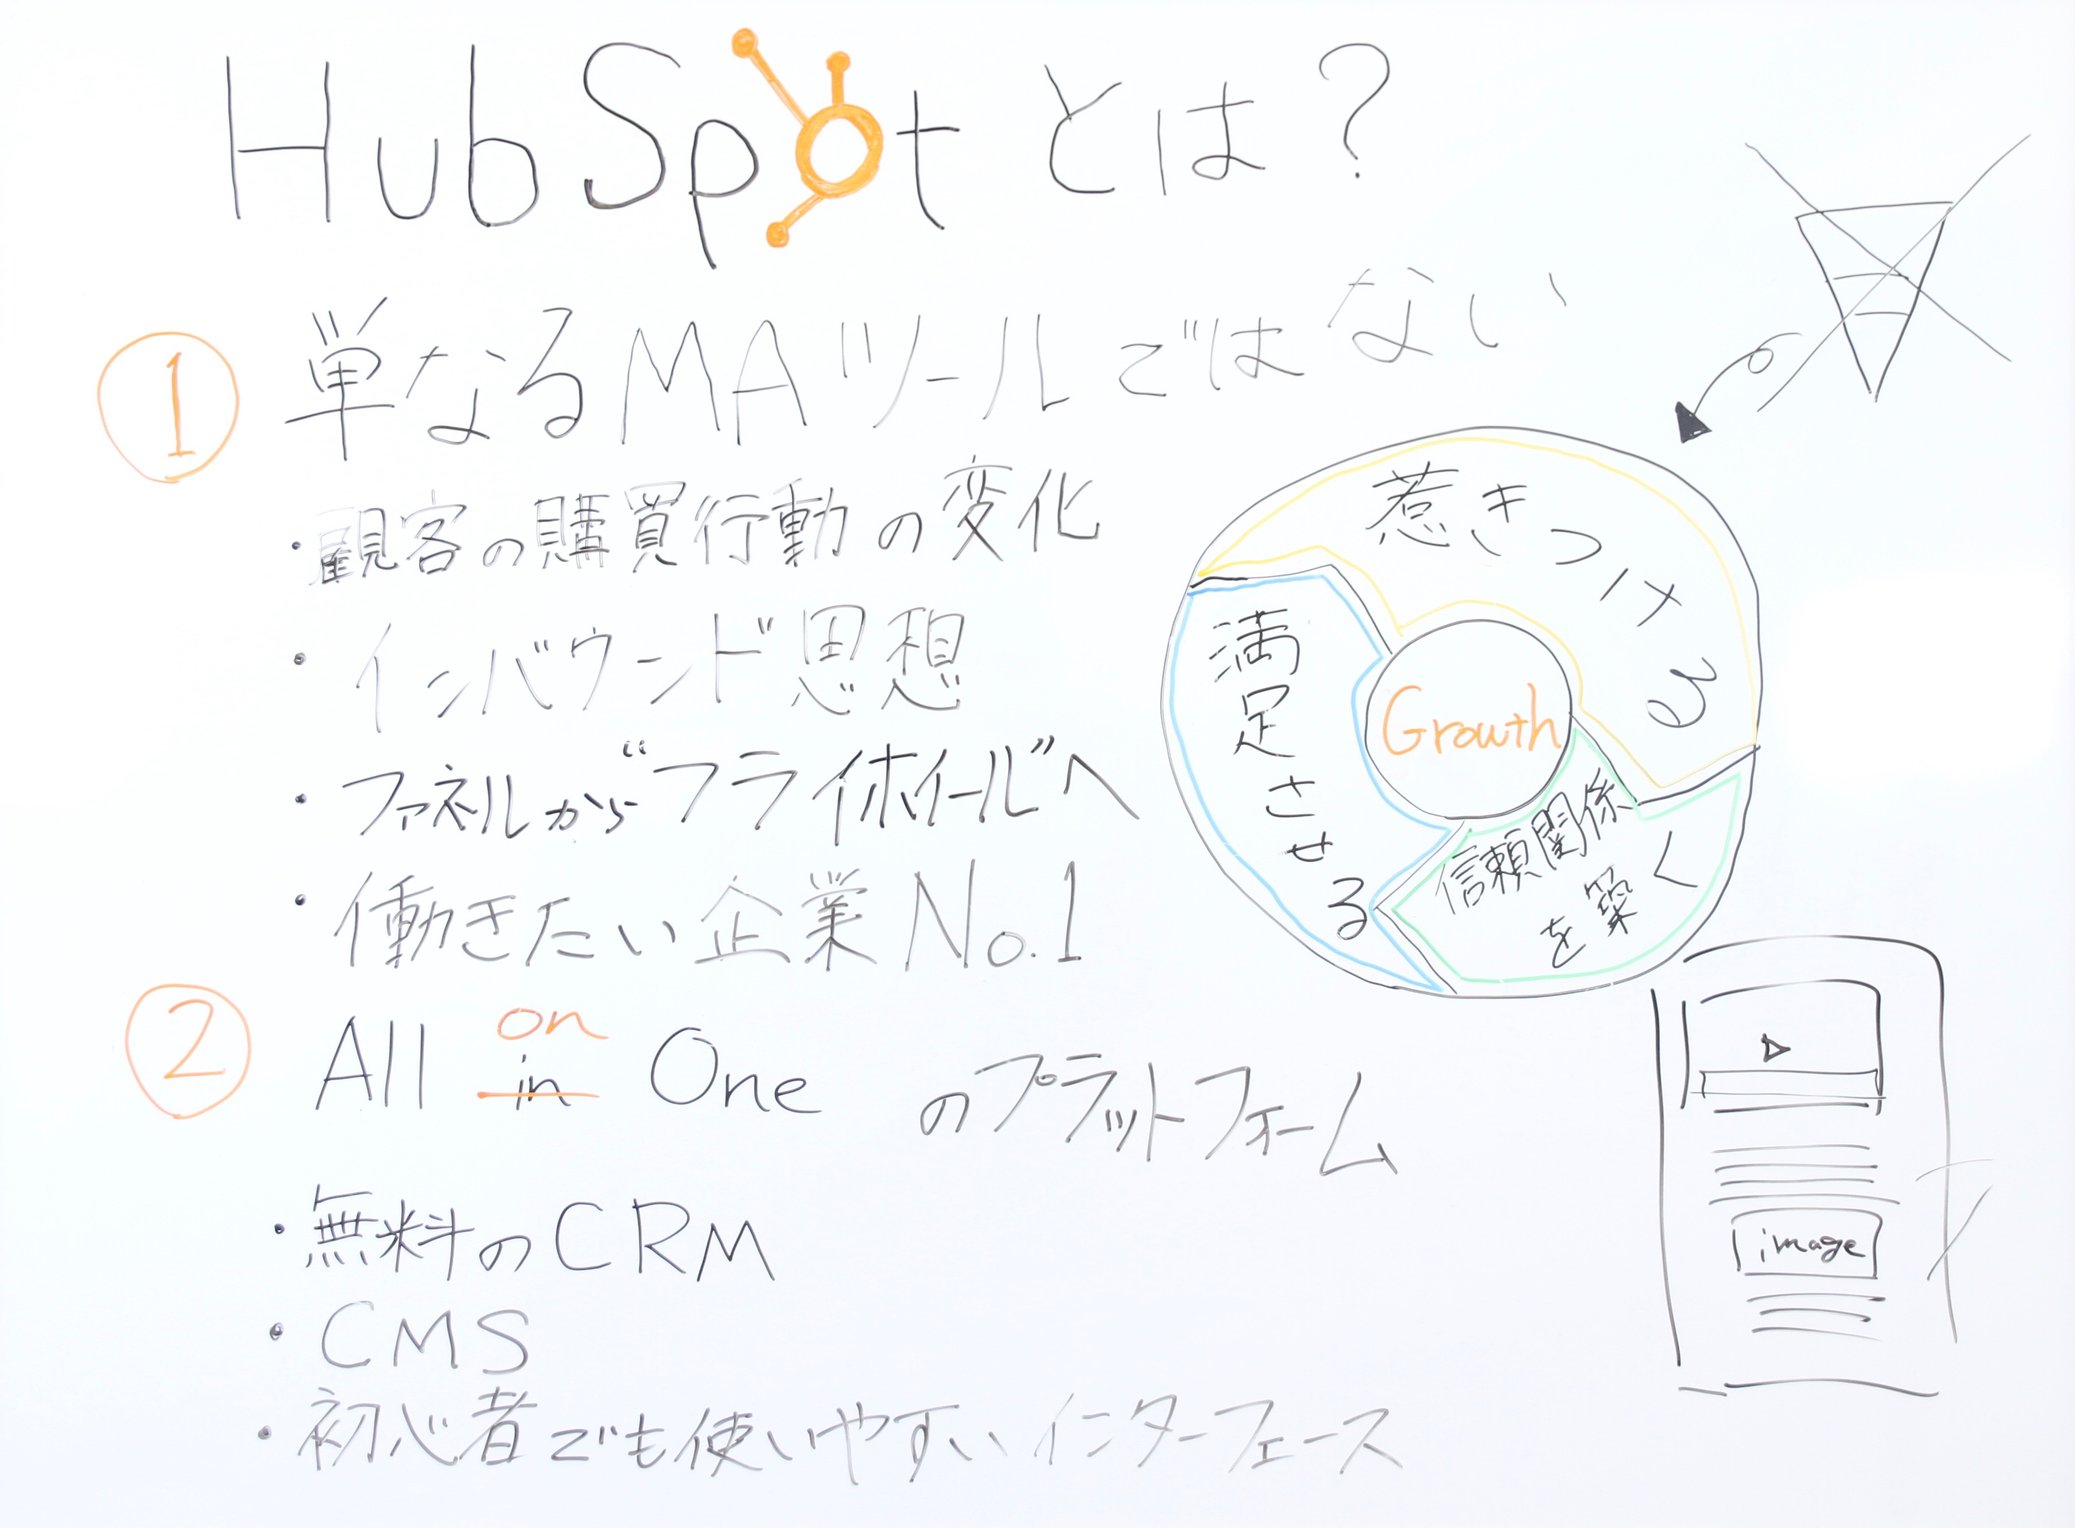 HubSpotとは？
① 単なるMAツールではない
・顧客の購買行動の変化
・インバウンド思想
・ファネルから“フライホイール”へ
・働きたい企業No.1
惹きつける
満足させる
信頼関係
を築く
Growth
on
② All in One のプラットフォーム
・無料のCRM
・CMS
・初心者でも使いやすいインターフェース
image